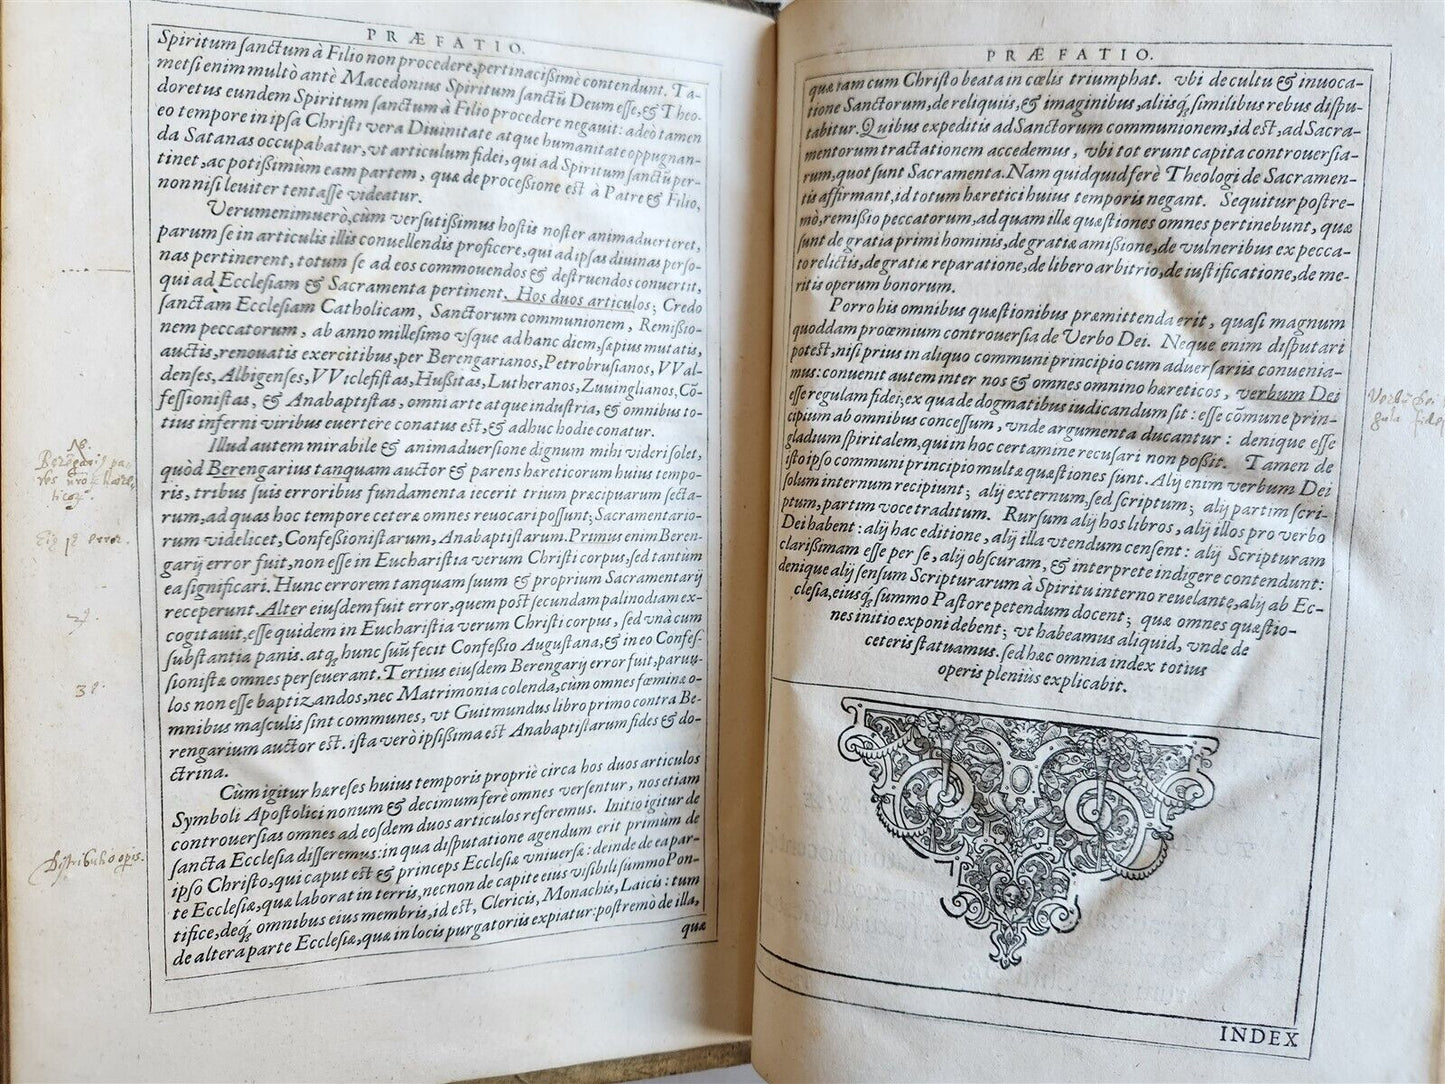 PRÆFATIO.
Spiritum ſanctum à Filio non procedere, pertinaciſſimè contendunt. Ta-
metſi enim multò antè Macedonius Spiritum ſanctũ Deum eſſe, & Theo-
doretus eundem Spiritum ſanctum à Filio procedere negauit: adeò tamen
eo tempore in ipſa Chriſti vera Diuinitate atque humanitate oppugnan-
da Satanas occupabatur, vt articulum fidei, qui ad Spiritum ſanctũ per-
tinet, ac potiſſimùm eam partem, quæ de proceſſione eſt à Patre & Filio,
non niſi leuiter tentaſſe videatur.
Verumenimuerò, cùm verſutiſſimus hoſtis noſter animaduerteret,
parum ſe in articulis illis conuellendis proficere, qui ad ipſas diuinas perſo-
nas pertinerent, totum ſe ad eos commouendos & deſtruendos conuertit,
qui ad Eccleſiam & Sacramenta pertinent. Hos duos articulos; Credo
ſanctam Eccleſiam Catholicam, Sanctorum communionem, Remiſſio-
nem peccatorum, ab anno milleſimo vſque ad hanc diem, ſæpius mutatis,
auctis, renouatis exercitibus, per Berengarianos, Petrobruſianos, VVal-
denſes, Albigenſes, VViclefiſtas, Huſſitas, Lutheranos, Zuuinglianos, Cõ-
feſſioniſtas, & Anabaptiſtas, omni arte atque induſtria, & omnibus to-
tius inferni viribus euertere conatus eſt, & adhuc hodie conatur.
Illud autem mirabile & animaduerſione dignum mihi videri ſolet,
quòd Berengarius tanquam auctor & parens hæreticorum huius tempo-
ris, tribus ſuis erroribus fundamenta iecerit trium præcipuarum ſecta-
rum, ad quas hoc tempore ceteræ omnes reuocari poſſunt; Sacramentario-
rum videlicet, Confeſſioniſtarum, Anabaptiſtarum. Primus enim Beren-
garij error fuit, non eſſe in Euchariſtia verum Chriſti corpus, ſed tantùm
ea ſignificari. Hunc errorem tanquam ſuum & proprium Sacramentarij
receperunt. Alter eiuſdem fuit error, quem poſt ſecundam palinodiam ex-
cogitauit, eſſe quidem in Euchariſtia verum Chriſti corpus, ſed vnà cum
ſubſtantia panis. atq; hunc ſuũ fecit Confeſſio Auguſtana, & in eo Confeſ-
ſioniſtæ omnes perſeuerant. Tertius eiuſdem Berengarij error fuit, paruu-
los non eſſe baptizandos, nec Matrimonia colenda, cùm omnes fœminæ o-
mnibus maſculis ſint communes, vt Guitmundus libro primo contra Be-
rengarium auctor eſt. iſta verò ipſiſſima eſt Anabaptiſtarum fides & do-
ctrina.
Cùm igitur hæreſes huius temporis propriè circa hos duos articulos
Symboli Apoſtolici nonum & decimum ferè omnes verſentur, nos etiam
controuerſias omnes ad eoſdem duos articulos referemus. Initio igitur de
ſancta Eccleſia diſſeremus: in qua diſputatione agendum erit primùm de
ipſo Chriſto, qui caput eſt & princeps Eccleſiæ vniuerſæ: deinde de ea par-
te Eccleſiæ, quæ laborat in terris, necnon de capite eius viſibili ſummo Pon-
tifice, deq; omnibus eius membris, id eſt, Clericis, Monachis, Laicis: tum
de altera parte Eccleſiæ, quæ in locis purgatoriis expiatur: poſtremò de illa,
quæ
Distributio operis.
PRÆFATIO.
quæ iam cum Chriſto beata in cœlis triumphat. vbi de cultu & inuoca-
tione Sanctorum, de reliquiis, & imaginibus, aliisq; ſimilibus rebus diſpu-
tabitur. Quibus expeditis ad Sanctorum communionem, id eſt, ad Sacra-
mentorum tractationem accedemus, vbi tot erunt capita controuerſia-
rum, quot ſunt Sacramenta. Nam quidquid ferè Theologi de Sacramen-
tis affirmant, id totum hæretici huius temporis negant. Sequitur poſtre-
mò, remiſſio peccatorum, ad quam illæ quæſtiones omnes pertinebunt, quæ
ſunt de gratia primi hominis, de gratiæ amiſſione, de vulneribus ex pecca-
to relictis, de gratiæ reparatione, de libero arbitrio, de iuſtificatione, de me-
ritis operum bonorum.
Porro his omnibus quæſtionibus præmittenda erit, quaſi magnum
quoddam proœmium controuerſia de Verbo Dei. Neque enim diſputari
poteſt, niſi prius in aliquo communi principio cum aduerſariis conuenia-
mus: conuenit autem inter nos & omnes omnino hæreticos, verbum Dei
eſſe regulam fidei, ex qua de dogmatibus iudicandum ſit: eſſe cõmune prin-
cipium ab omnibus conceſſum, vnde argumenta ducantur: denique eſſe
gladium ſpiritalem, qui in hoc certamine recuſari non poſſit. Tamen de
iſto ipſo communi principio multæ quæſtiones ſunt. Alij enim verbum Dei
ſolum internum recipiunt; alij externum, ſed ſcriptum; alij partim ſcri-
ptum, partim voce traditum. Rurſum alij hos libros, alij illos pro verbo
Dei habent: alij hac editione, alij illa vtendum cenſent: alij Scripturam
clariſſimam eſſe per ſe, alij obſcuram, & interprete indigere contendunt:
denique alij ſenſum Scripturarum à Spiritu interno reuelante, alij ab Ec-
cleſia, eiuſq; ſummo Paſtore petendum docent; quæ omnes quæſtio-
nes initio exponi debent; vt habeamus aliquid, vnde de
ceteris ſtatuamus. ſed hæc omnia index totius
operis plenius explicabit.
INDEX